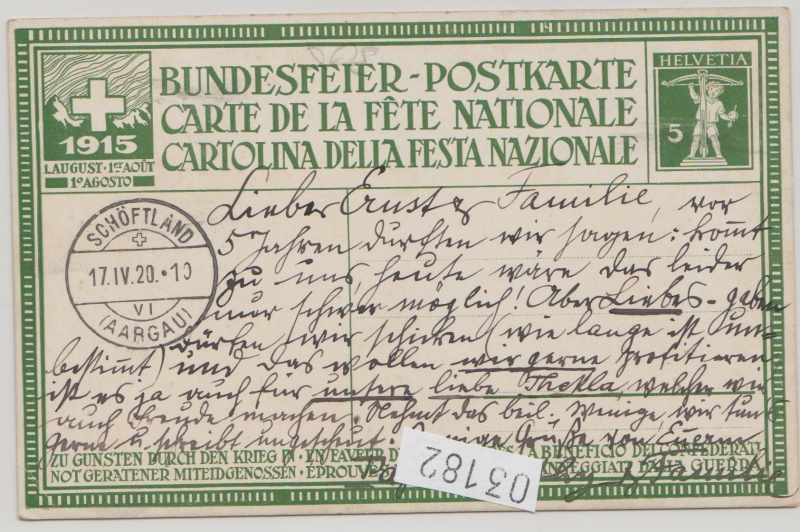 BUNDESFEIER-POSTKARTE
CARTE DE LA FÊTE NATIONALE
CARTOLINA DELLA FESTA NAZIONALE
1915
1.AUGUST·1ER AOÛT
1º AGOSTO
HELVETIA
5
SCHÖFTLAND
17.IV.20.·10
VI
(AARGAU)
Lieber Ernst & Familie, vor
5 Jahren durften wir sagen: kommt
zu uns, heute wäre das leider
nur schwer möglich! Aber Liebes-gaben
dürfen wir schicken (wie lange ist un-
bestimmt) und das wollen wir gerne profitieren
ist es ja auch für unsere liebe Thekla, welcher wir
auch Freude machen. Nehmt das beil. Wenige, wir tun's
gerne u schreibt ungescheut. Grüße von Euerm
ZU GUNSTEN DURCH DEN KRIEG IN · EN FAVEUR D A BENEFICIO DEI CONFEDERATI
NOT GERATENER MITEIDGENOSSEN · ÉPROUV NNEGGIATI DALLA GUERRA
& Familie
03182